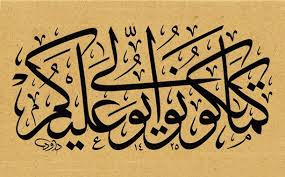 كما تكونوا يولّى عليكم
١٤٢٥